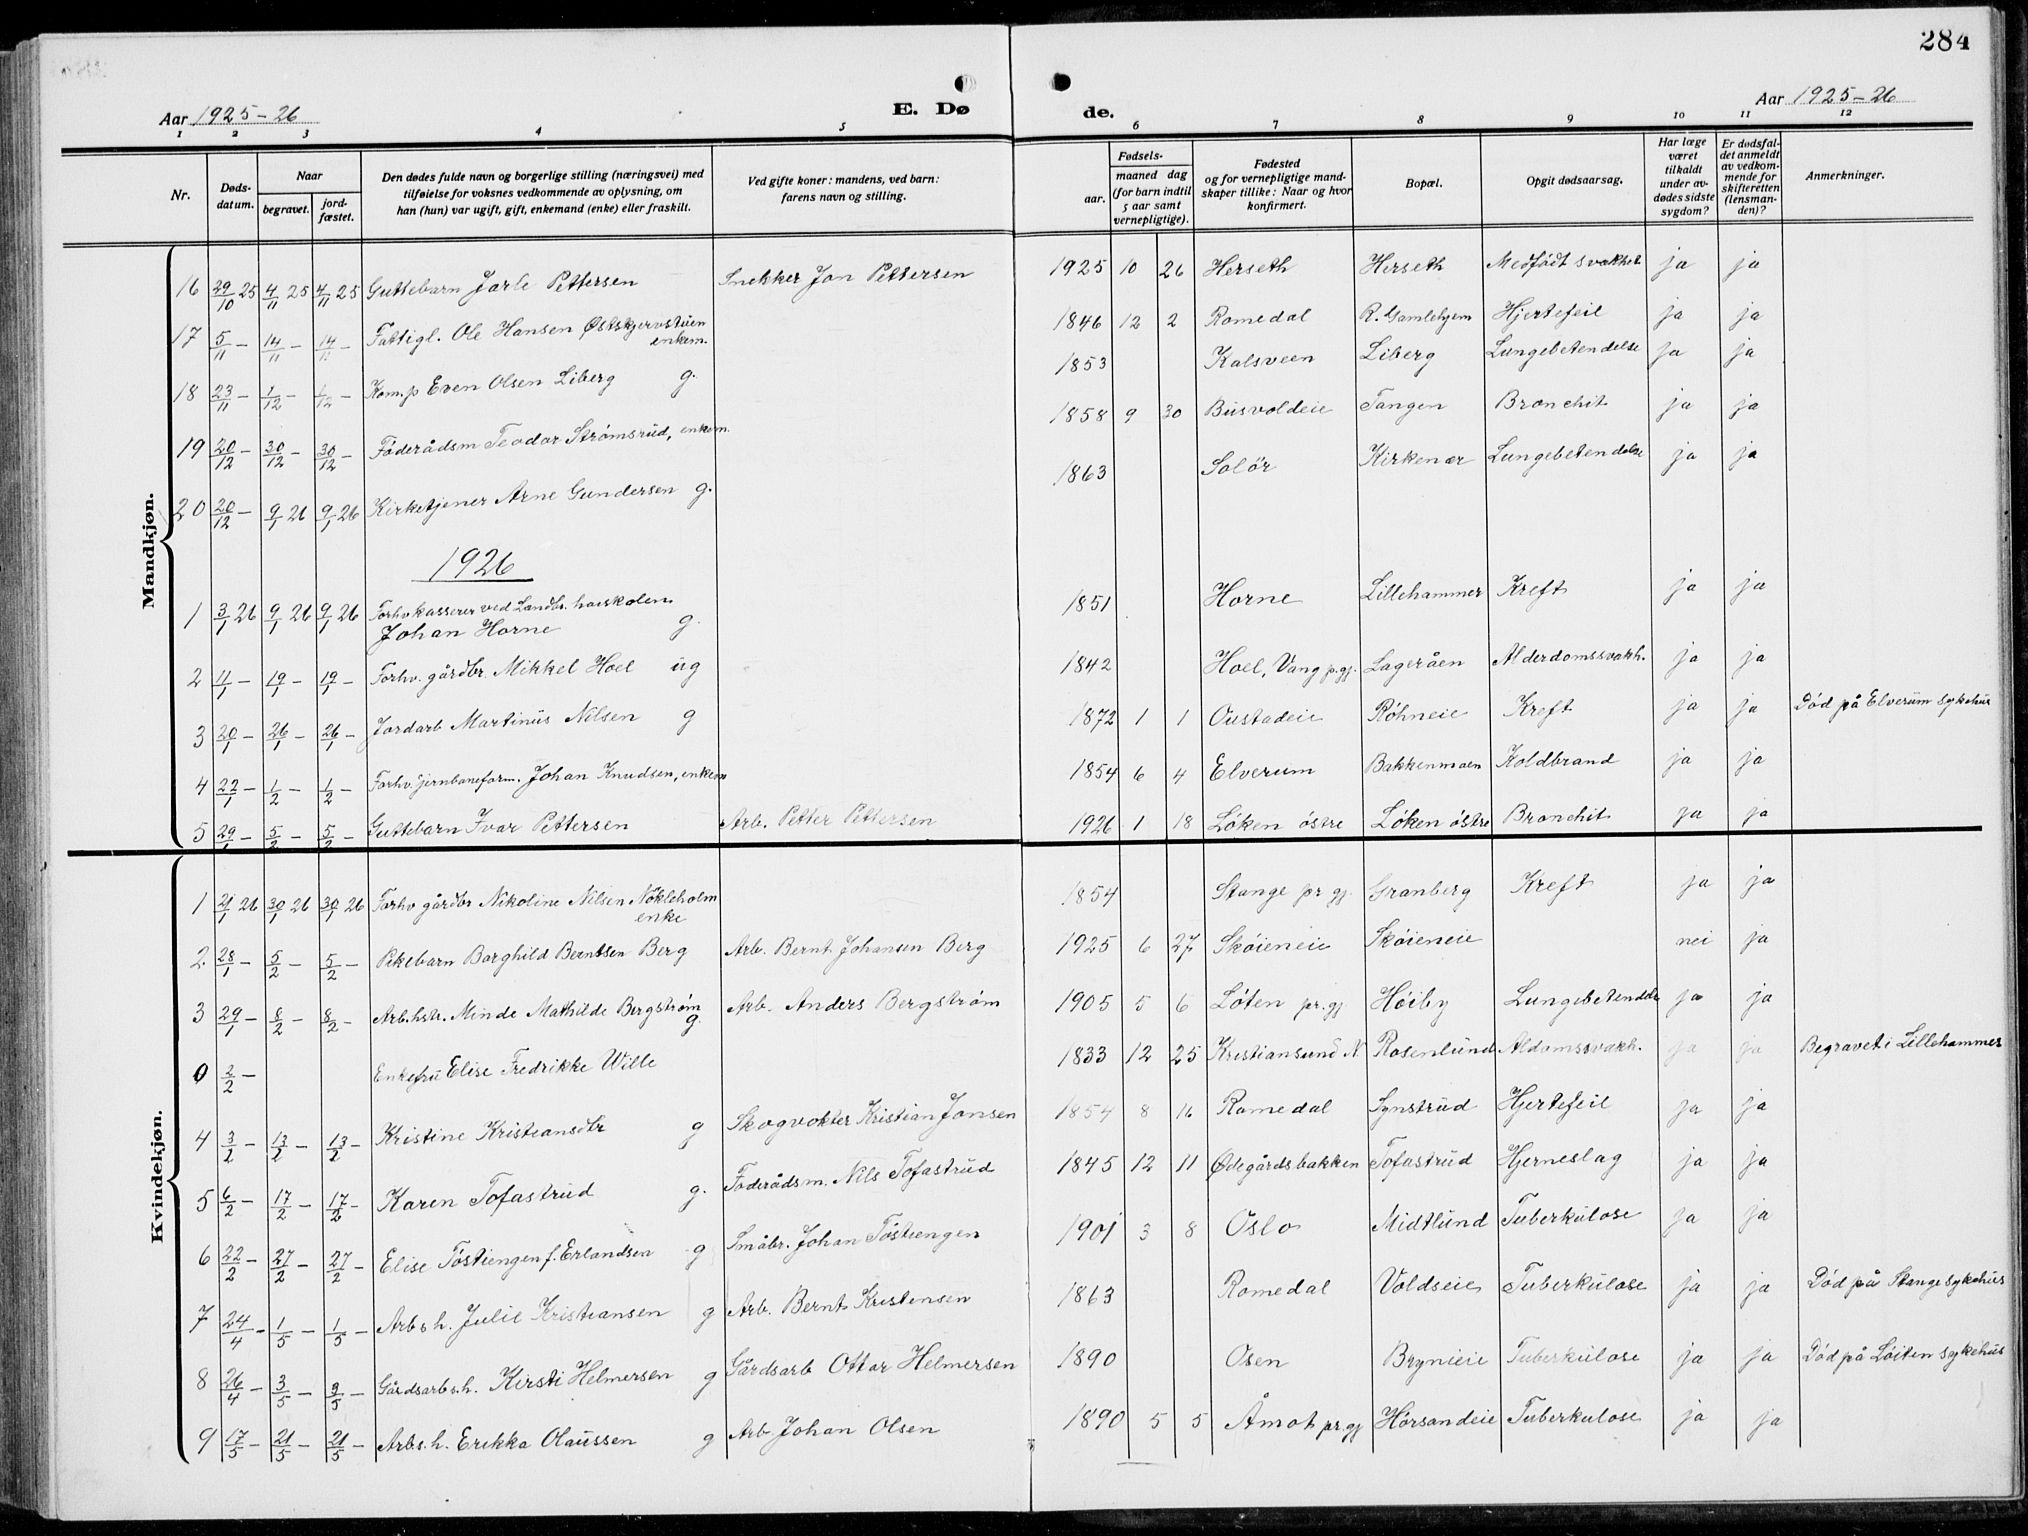 284
Aar 1925-26 E. Dø de. Aar 1925-26
1 2 3 4 5 6 7 8 9 10 11 12
Nr. Døds-datum. Naar begravet. jord-fæstet. Den dødes fulde navn og borgerlige stilling (næringsvei) med tilføielse for voksnes vedkommende av oplysning, om han (hun) var ugift, gift, enkemand (enke) eller fraskilt. Ved gifte koner: mandens, ved barn: farens navn og stilling. Fødsels- aar. maaned dag (for barn indtil 5 aar samt vernepligtige). Fødested og for vernepligtige mandskaper tillike: Naar og hvor konfirmert. Bopæl. Opgit dødsaarsag. Har læge været tilkaldt under avdødes sidste sygdom? Er dødsfaldet anmeldt av vedkommende for skifteretten (lensmanden)? Anmerkninger.
Mandkjøn.
16 29/10 25 4/11 25 4/11 25 Guttebarn Jarle Pettersen Snekker Jon Pettersen 1925 10 26 Herseth Herseth Medfødt svakhet ja ja
17 5/11 - 14/11 - 14/11 - Fattigl. Ole Hansen Østskjervstuen enkem. 1846 12 2 Romedal R. Gamlehjem Hjertefeil ja ja
18 23/11 - 1/12 - 1/12 - Kom.p Even Olsen Liberg g. 1853 Kalsveen Liberg Lungebetendelse ja ja
19 20/12 - 30/12 - 30/12 - Føderådsm Teodor Strømsrud, enkem. 1858 9 30 Busvoldeie Tangen Bronchit ja ja
20 20/12 - 9/1 26 9/1 26 Kirketjener Arne Gundersen g. 1863 Solør Kirkenær Lungebetendelse ja ja
1926
1 3/1 26 9/1 26 9/1 26 Forhv kasserer ved Landbr. høiskolen Johan Horne g. 1851 Horne Lillehammer Kreft ja ja
2 11/1 - 19/1 - 19/1 - Forhv. gårdbr. Mikkel Hoel ug 1842 Hoel, Vang pr.gj. Lageråen Alderdomssvakh. ja ja
3 20/1 - 26/1 - 26/1 - Jordarb Martinus Nilsen g 1872 1 1 Oustadeie Røhneie Kreft ja ja Død på Elverum sykehus
4 22/1 - 1/2 - 1/2 - Forhv. jernbaneform. Johan Knudsen, enkem 1854 6 4 Elverum Bakkenmoen Koldbrand ja ja
5 29/1 - 5/2 - 5/2 - Guttebarn Ivar Pettersen Arb. Petter Pettersen 1926 1 18 Løken østre Løken østre Bronchit ja ja
Kvindekjøn.
1 21/1 26 30/1 26 30/1 26 Forhv gårdbr Nikoline Nilsen Nökleholm enke 1854 Stange pr.gj. Granberg Kreft ja ja
2. 28/1 - 5/2 - 5/2 - Pikebarn Borghild Berntsen Berg Arb. Bernt Johansen Berg 1925 6 27 Skøieneie Skøieneie nei ja
3 29/1 - 8/2 - 8/2 - Arb.hstr. Minde Mathilde Bergstrøm g. Arb. Anders Bergstrøm 1905 5 6 Løten pr.gj Høiby Lungebetendelse ja ja
0 2/2 - Enkefru Elise Fredrikke Wille 1833 12 25 Kristiansund N Rosenlund Aldomssvakh. ja ja Begravet i Lillehammer
4 3/2 - 13/2 - 13/2 - Kristine Kristiansdtr g Skogvokter Kristian Jonsen 1854 8 16 Romedal Synstrud Hjertefeil ja ja
5 6/2 - 17/2 - 17/2 - Karen Tofastrud g. Føderådsm. Nils Tofastrud 1845 12 11 Ødegårdsbakken Tofastrud Hjerneslag ja ja
6 22/2 - 27/2 - 27/2 - Elise Tøstiengen f. Erlandsen g Småbr. Johan Tøstiengen 1901 3 8 Oslo Midtlund Tuberkulose ja ja
7 24/4 - 1/5 - 1/5 - Arbs.h. Julie Kristiansen g Arb. Bernt Kristensen 1863 Romedal Voldseie Tuberkulose ja ja Død på Stange sykehus
8 26/4 - 3/5 - 3/5 - Gårdsarbs.h. Kirsti Helmersen g Gårdsarb Ottar Helmersen 1890 Osen Brynieie Tuberkulose ja ja Død på Løiten sykehus
9 17/5 - 21/5 - 21/5 - Arbs.h. Erikka Olaussen g Arb. Johan Olsen 1890 5 5 Åmot pr.gj Hørsandeie Tuberkulose ja ja